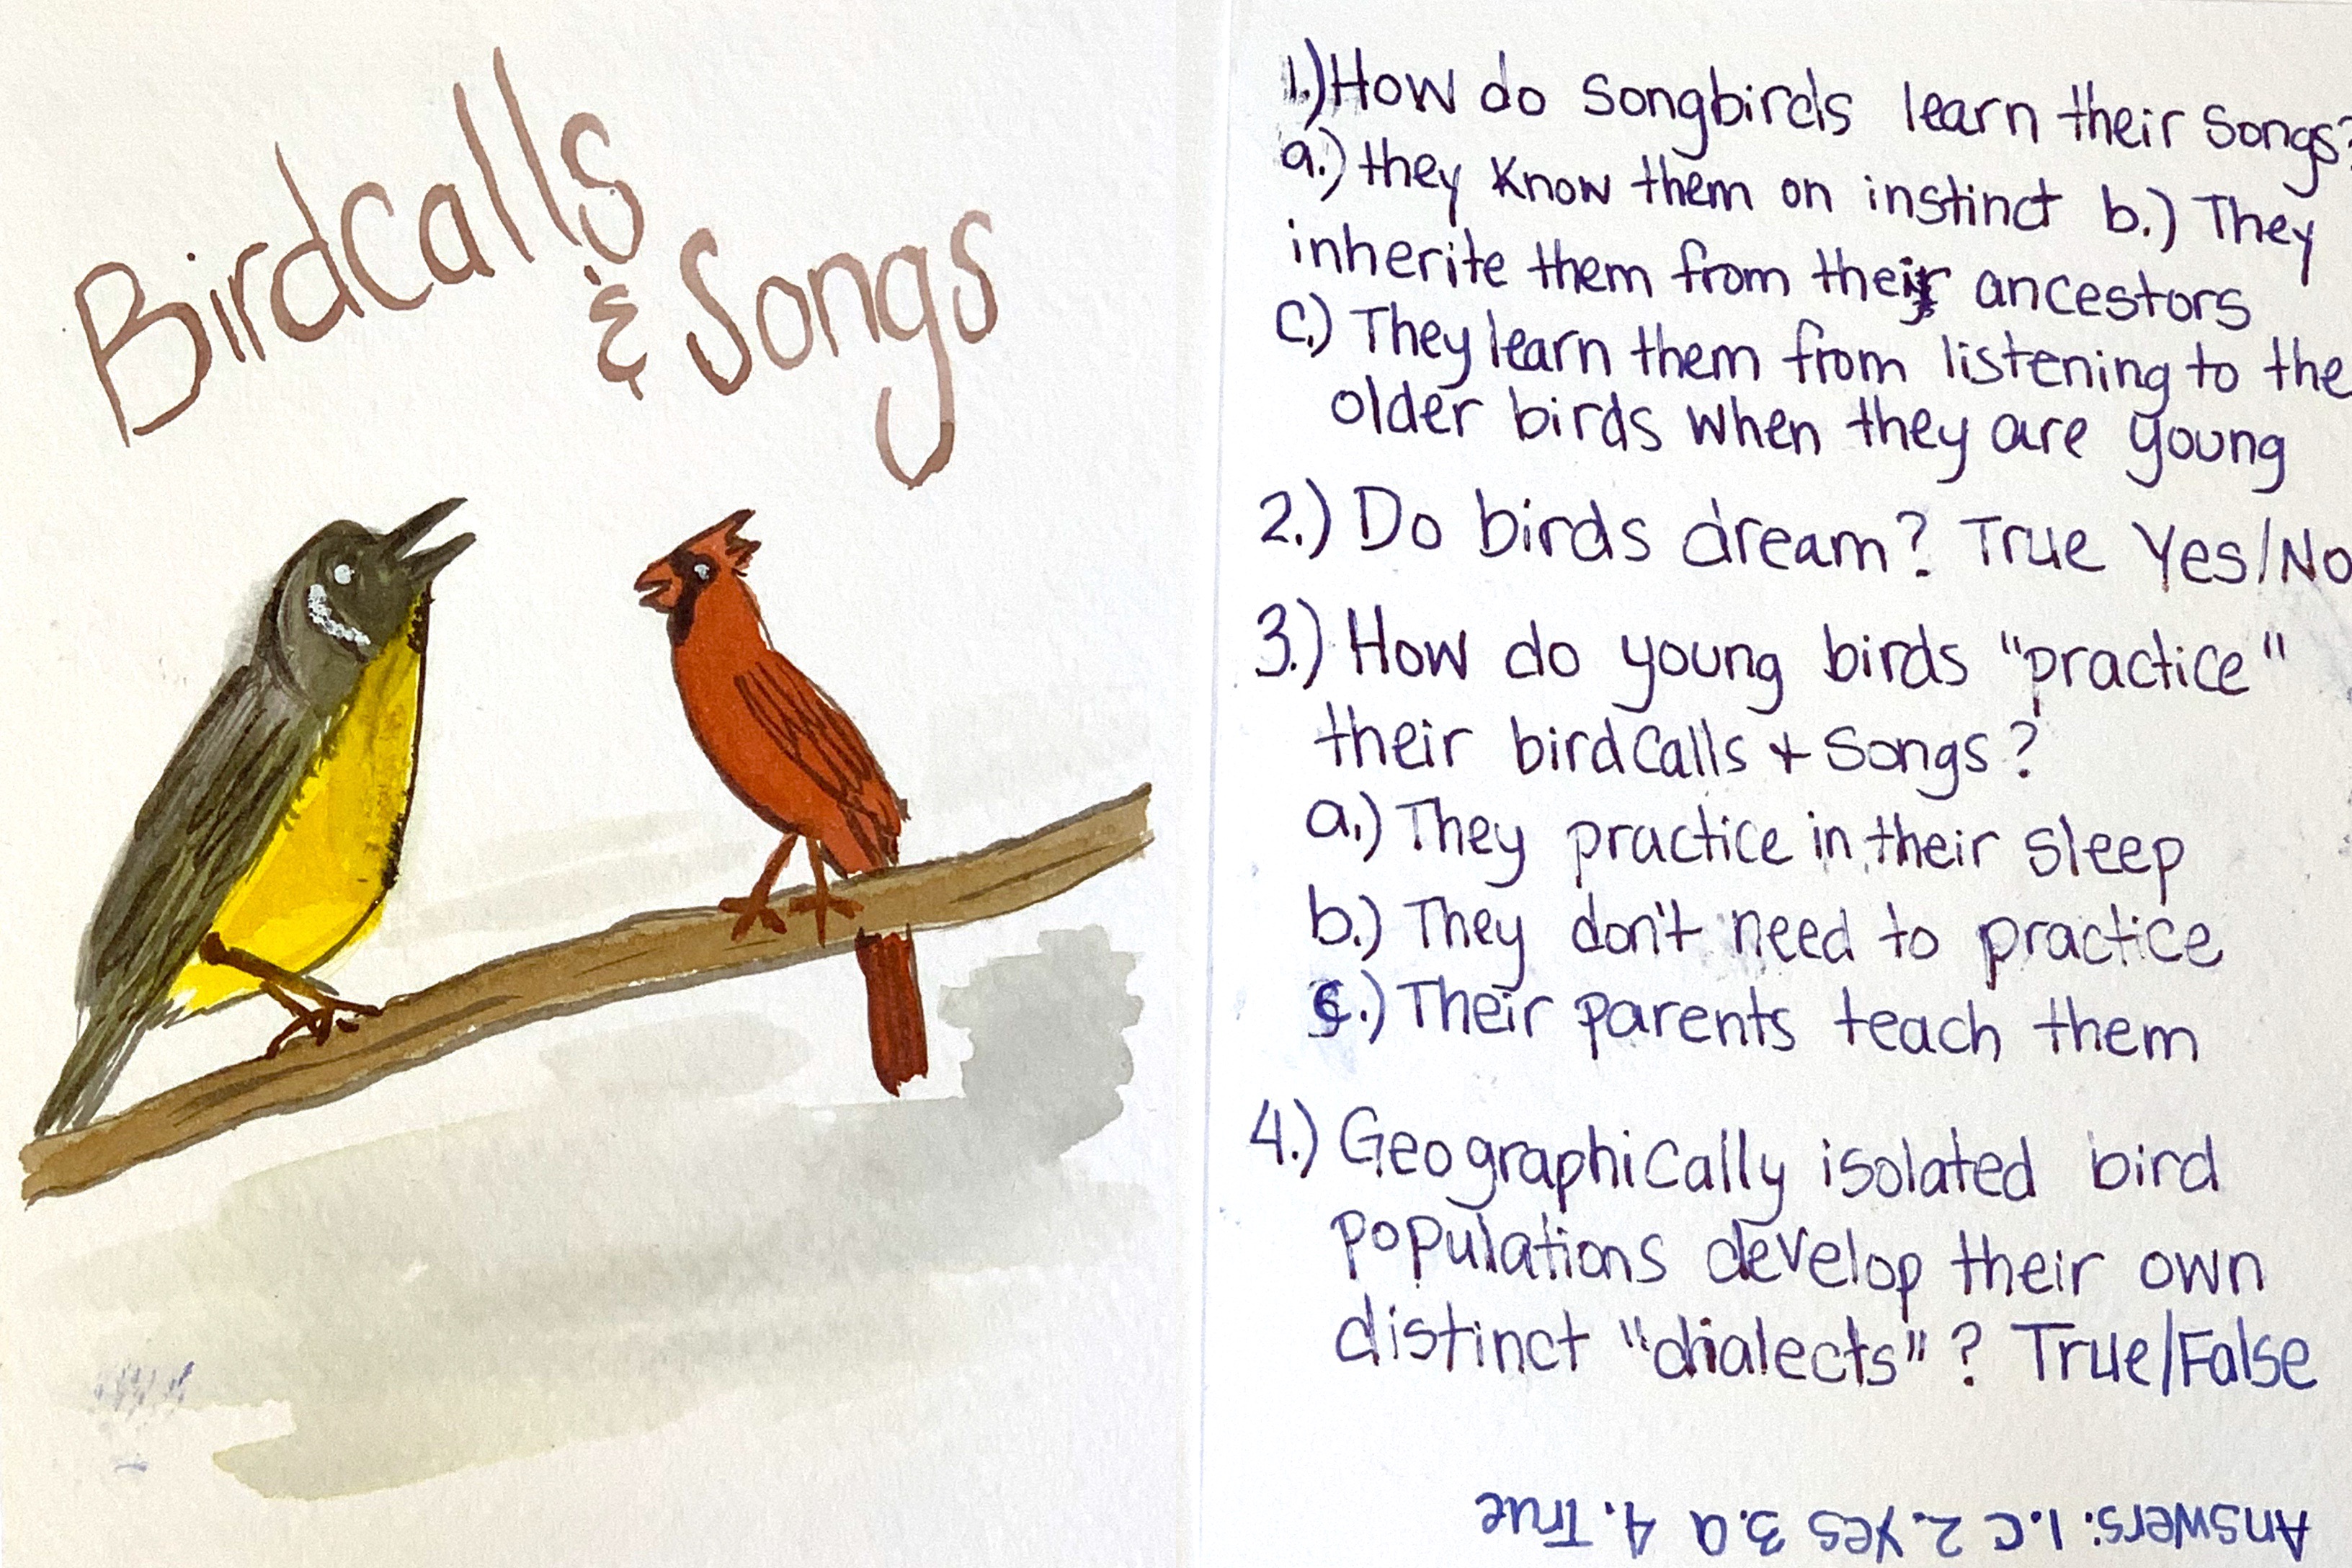 Birdcalls
& Songs
1.) How do songbirds learn their songs?
a.) they know them on instinct b.) They
inherite them from their ancestors
c.) They learn them from listening to the
older birds when they are young
2.) Do birds dream? True Yes/No
3.) How do young birds "practice"
their birdcalls + songs?
a.) They practice in their sleep
b.) They don't need to practice
c.) Their parents teach them
4.) Geographically isolated bird
populations develop their own
distinct "dialects"? True/False
Answers: 1.C 2. Yes 3.a 4. True